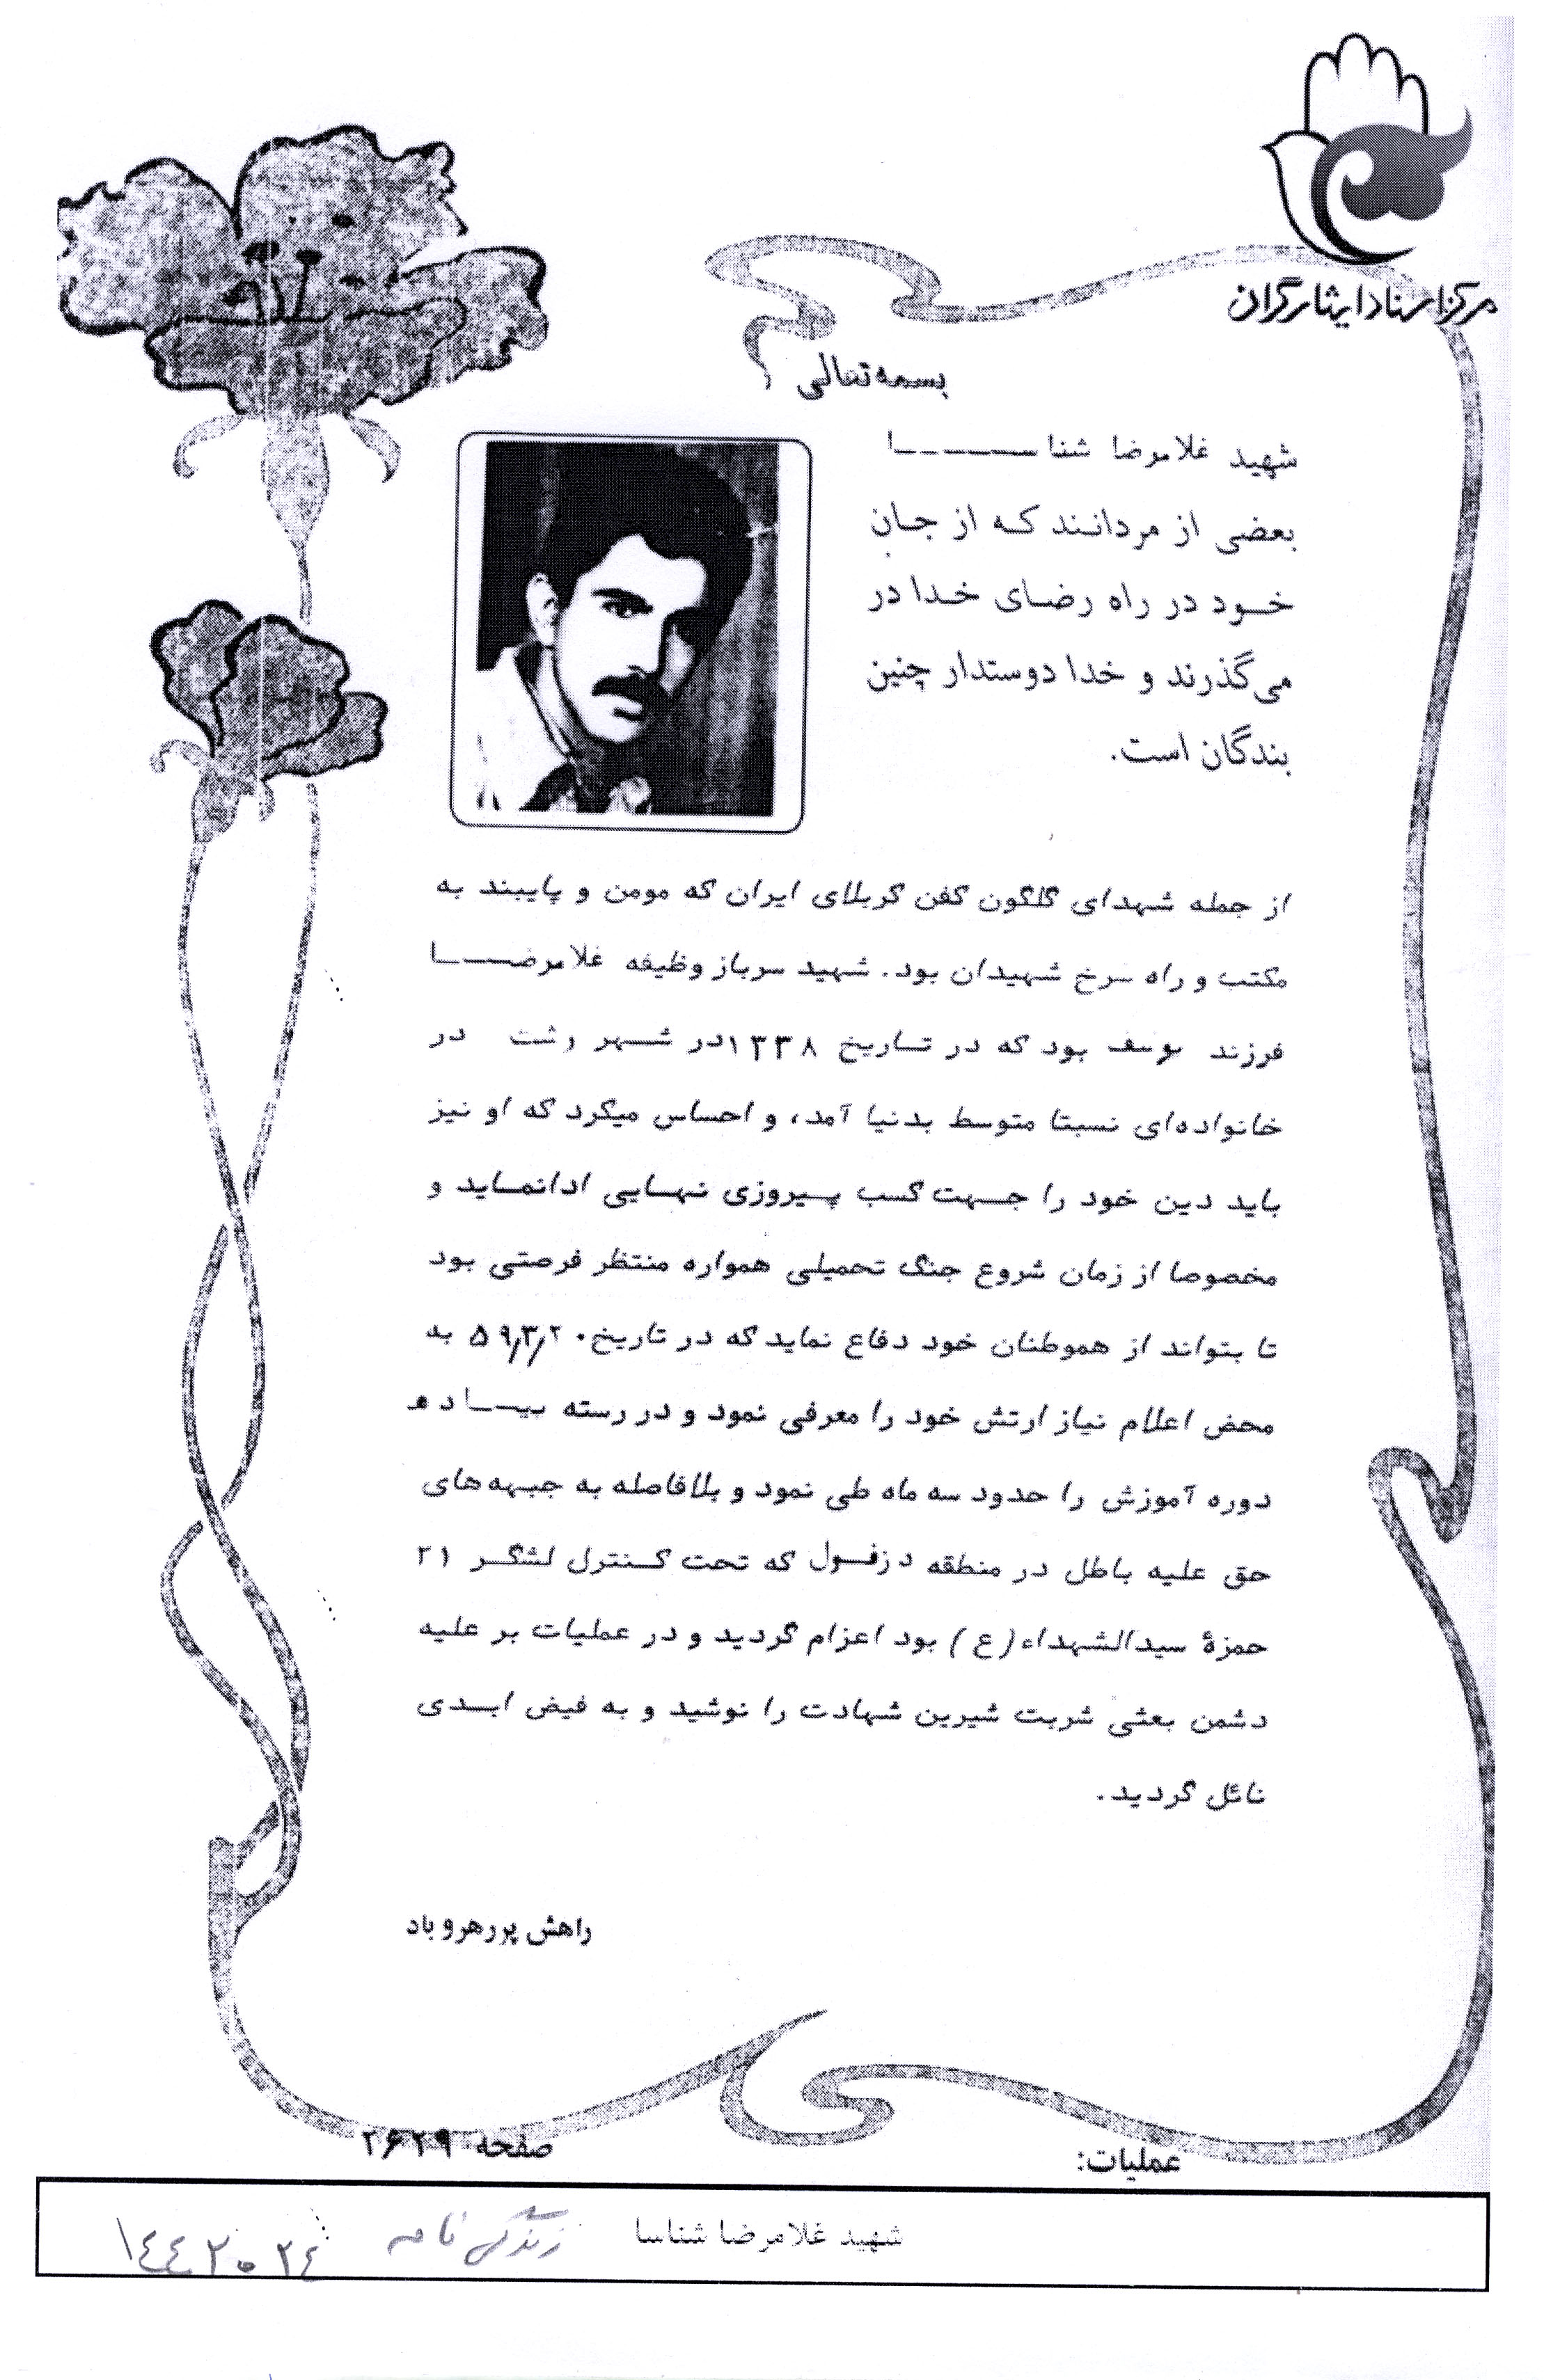 مرکز اسناد ایثارگران
بسمه تعالی
شهید غلامرضا شناسا
بعضی از مردانند که از جان
خود در راه رضای خدا در
می‌گذرند و خدا دوستدار چنین
بندگان است.
از جمله شهدای گلگون کفن کربلای ایران که مومن و پایبند به
مکتب و راه سرخ شهیدان بود. شهید سرباز وظیفه غلامرضا
فرزند یوسف بود که در تاریخ ۱۳۳۸ در شهر رشت در
خانواده‌ای نسبتا متوسط بدنیا آمد، و احساس میکرد که او نیز
باید دین خود را جهت کسب پیروزی نهایی ادا نماید و
مخصوصا از زمان شروع جنگ تحمیلی همواره منتظر فرصتی بود
تا بتواند از هموطنان خود دفاع نماید که در تاریخ ۵۹/۳/۲۰ به
محض اعلام نیاز ارتش خود را معرفی نمود و در رسته پیاده
دوره آموزش را حدود سه ماه طی نمود و بلافاصله به جبهه‌های
حق علیه باطل در منطقه دزفول که تحت کنترل لشگر ۲۱
حمزهٔ سیدالشهداء (ع) بود اعزام گردید و در عملیات بر علیه
دشمن بعثی شربت شیرین شهادت را نوشید و به فیض ابدی
نائل گردید.
راهش پررهرو باد
عملیات: صفحه ۲۶۲۹
شهید غلامرضا شناسا زندگی نامه ۱۴۴۲۰۲۴